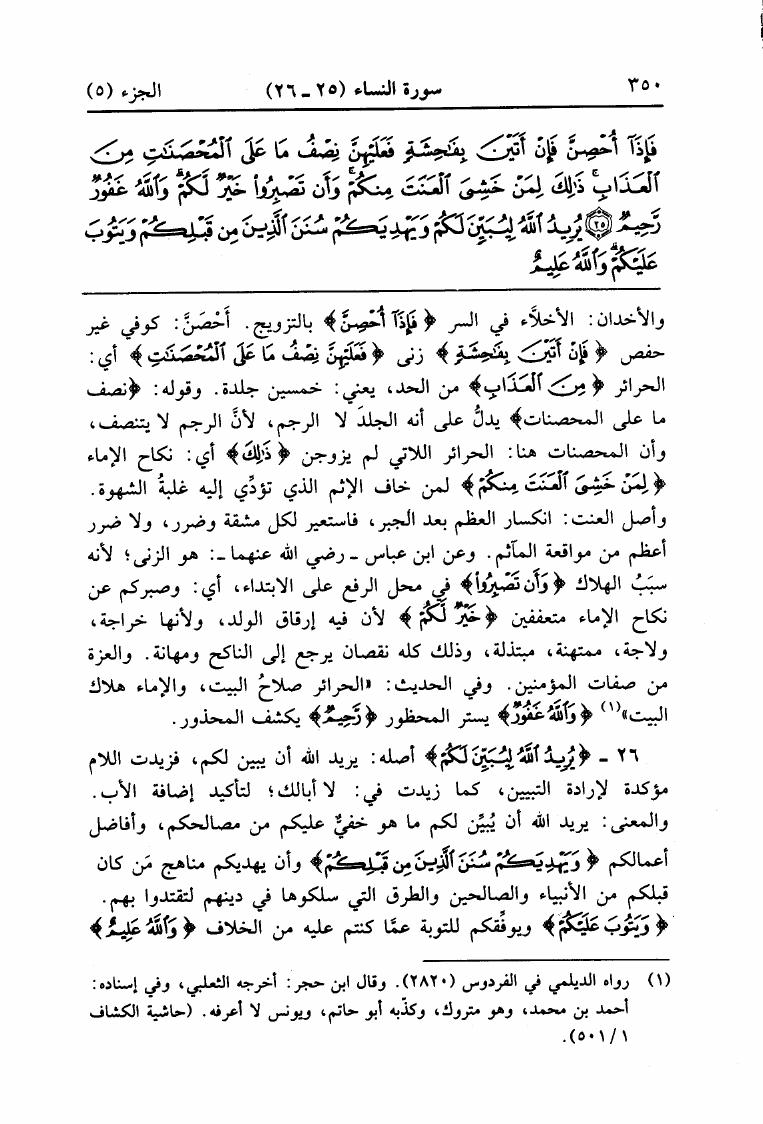 ٣٥٠
سورة النساء (٢٥ ـ ٢٦)
الجزء (٥)
فَإِذَآ أُحْصِنَّ فَإِنْ أَتَيْنَ بِفَٰحِشَةٍ فَعَلَيْهِنَّ نِصْفُ مَا عَلَى ٱلْمُحْصَنَٰتِ مِنَ
ٱلْعَذَابِ ۚ ذَٰلِكَ لِمَنْ خَشِىَ ٱلْعَنَتَ مِنكُمْ ۚ وَأَن تَصْبِرُوا۟ خَيْرٌ لَّكُمْ ۗ وَٱللَّهُ غَفُورٌ
رَّحِيمٌ ۝٢٥ يُرِيدُ ٱللَّهُ لِيُبَيِّنَ لَكُمْ وَيَهْدِيَكُمْ سُنَنَ ٱلَّذِينَ مِن قَبْلِكُمْ وَيَتُوبَ
عَلَيْكُمْ ۗ وَٱللَّهُ عَلِيمٌ
والأخدان: الأخلَّاء في السر ﴿ فَإِذَآ أُحْصِنَّ ﴾ بالتزويج. أَحْصَنَّ: كوفي غير
حفص ﴿ فَإِنْ أَتَيْنَ بِفَٰحِشَةٍ ﴾ زنى ﴿ فَعَلَيْهِنَّ نِصْفُ مَا عَلَى ٱلْمُحْصَنَٰتِ ﴾ أي:
الحرائر ﴿ مِنَ ٱلْعَذَابِ ﴾ من الحد، يعني: خمسين جلدة. وقوله: ﴿نصف
ما على المحصنات﴾ يدلُّ على أنه الجلدَ لا الرجم، لأنَّ الرجم لا يتنصف،
وأن المحصنات هنا: الحرائر اللاتي لم يزوجن ﴿ ذَٰلِكَ ﴾ أي: نكاح الإماء
﴿ لِمَنْ خَشِىَ ٱلْعَنَتَ مِنكُمْ ﴾ لمن خاف الإثم الذي تؤدِّي إليه غلبةُ الشهوة.
وأصل العنت: انكسار العظم بعد الجبر، فاستعير لكل مشقة وضرر، ولا ضرر
أعظم من مواقعة المآثم. وعن ابن عباس ـ رضي الله عنهما ـ: هو الزنى؛ لأنه
سبَبُ الهلاك ﴿ وَأَن تَصْبِرُوا۟ ﴾ في محل الرفع على الابتداء، أي: وصبركم عن
نكاح الإماء متعففين ﴿ خَيْرٌ لَّكُمْ ﴾ لأن فيه إرقاق الولد، ولأنها خراجة،
ولاجة، ممتهنة، مبتذلة، وذلك كله نقصان يرجع إلى الناكح ومهانة. والعزة
من صفات المؤمنين. وفي الحديث: «الحرائر صلاحُ البيت، والإماء هلاك
البيت»(١) ﴿ وَٱللَّهُ غَفُورٌ ﴾ يستر المحظور ﴿ رَّحِيمٌ ﴾ يكشف المحذور.
٢٦ ـ ﴿ يُرِيدُ ٱللَّهُ لِيُبَيِّنَ لَكُمْ ﴾ أصله: يريد الله أن يبين لكم، فزيدت اللام
مؤكدة لإرادة التبيين، كما زيدت في: لا أبالك؛ لتأكيد إضافة الأب.
والمعنى: يريد الله أن يُبيِّن لكم ما هو خفيٌّ عليكم من مصالحكم، وأفاضل
أعمالكم ﴿ وَيَهْدِيَكُمْ سُنَنَ ٱلَّذِينَ مِن قَبْلِكُمْ ﴾ وأن يهديكم مناهج مَن كان
قبلكم من الأنبياء والصالحين والطرق التي سلكوها في دينهم لتقتدوا بهم.
﴿ وَيَتُوبَ عَلَيْكُمْ ﴾ ويوفِّقكم للتوبة عمَّا كنتم عليه من الخلاف ﴿ وَٱللَّهُ عَلِيمٌ ﴾
(١) رواه الديلمي في الفردوس (٢٨٢٠). وقال ابن حجر: أخرجه الثعلبي، وفي إسناده:
أحمد بن محمد، وهو متروك، وكذّبه أبو حاتم، ويونس لا أعرفه. (حاشية الكشاف
١/ ٥٠١).